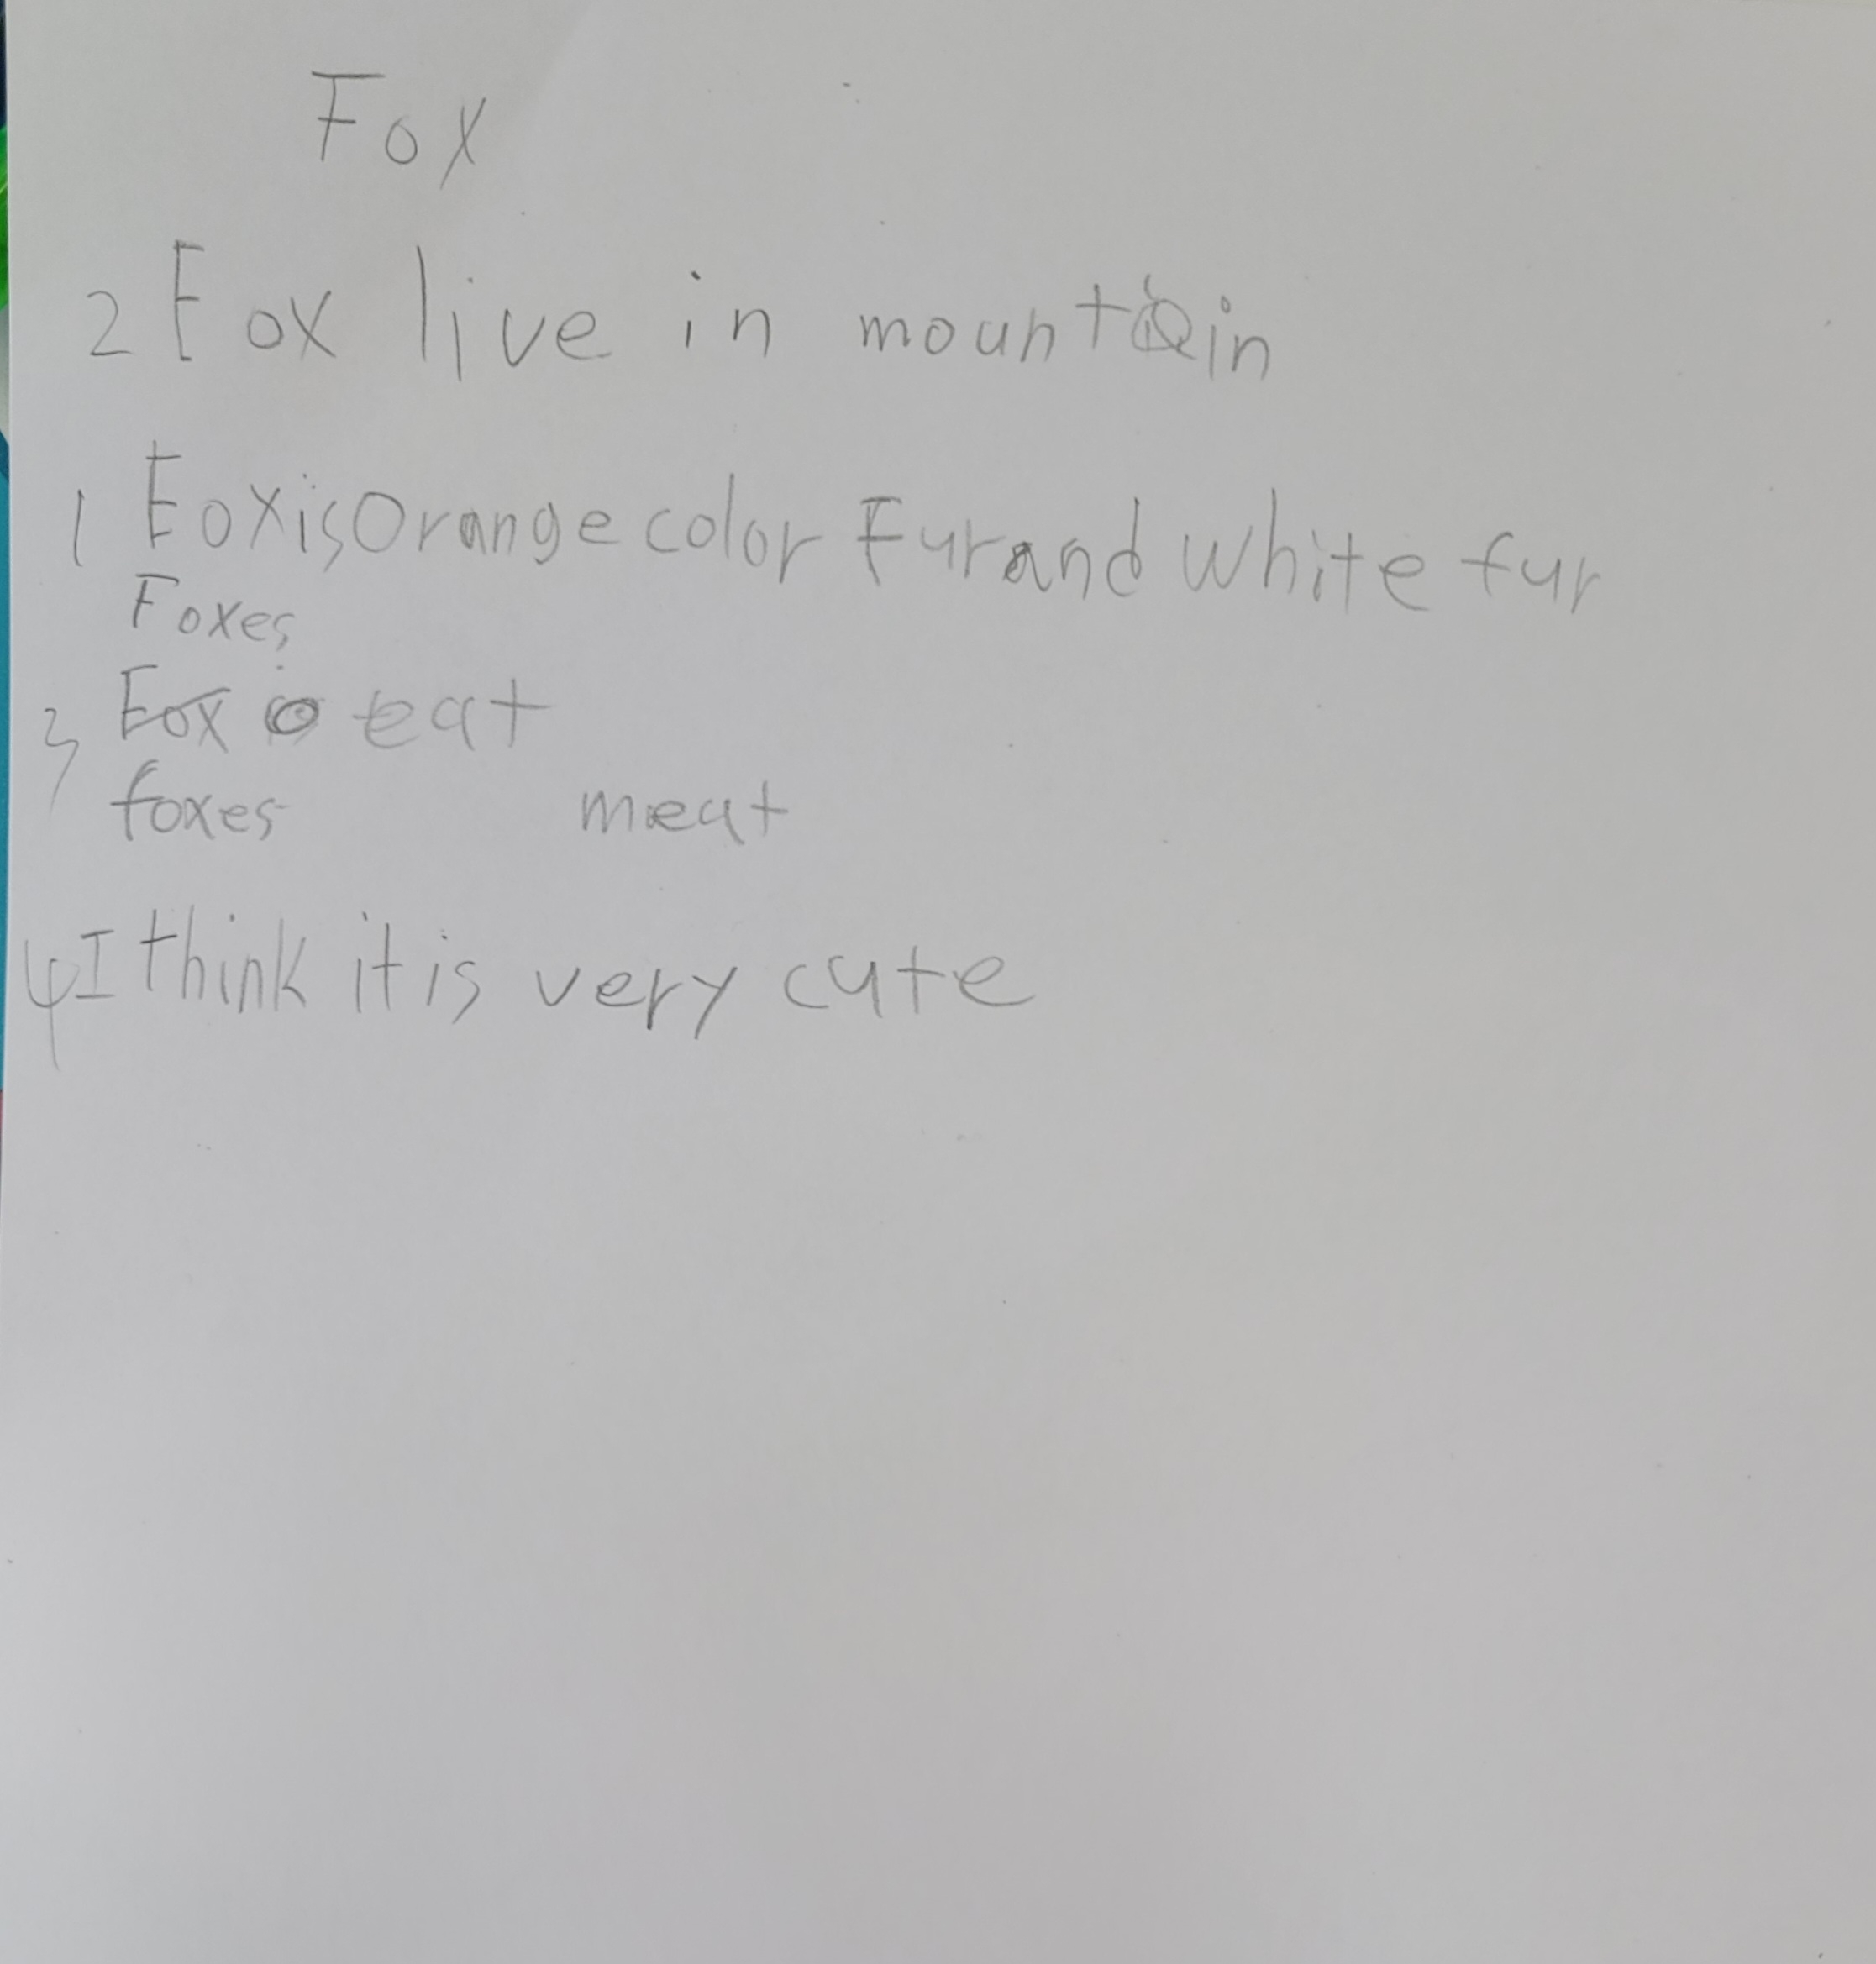 Fox
2 Fox live in mountain
1 Foxis Orange color Furand white fur
Foxes
3 Fox eat
foxes meat
4 I think it is very cute